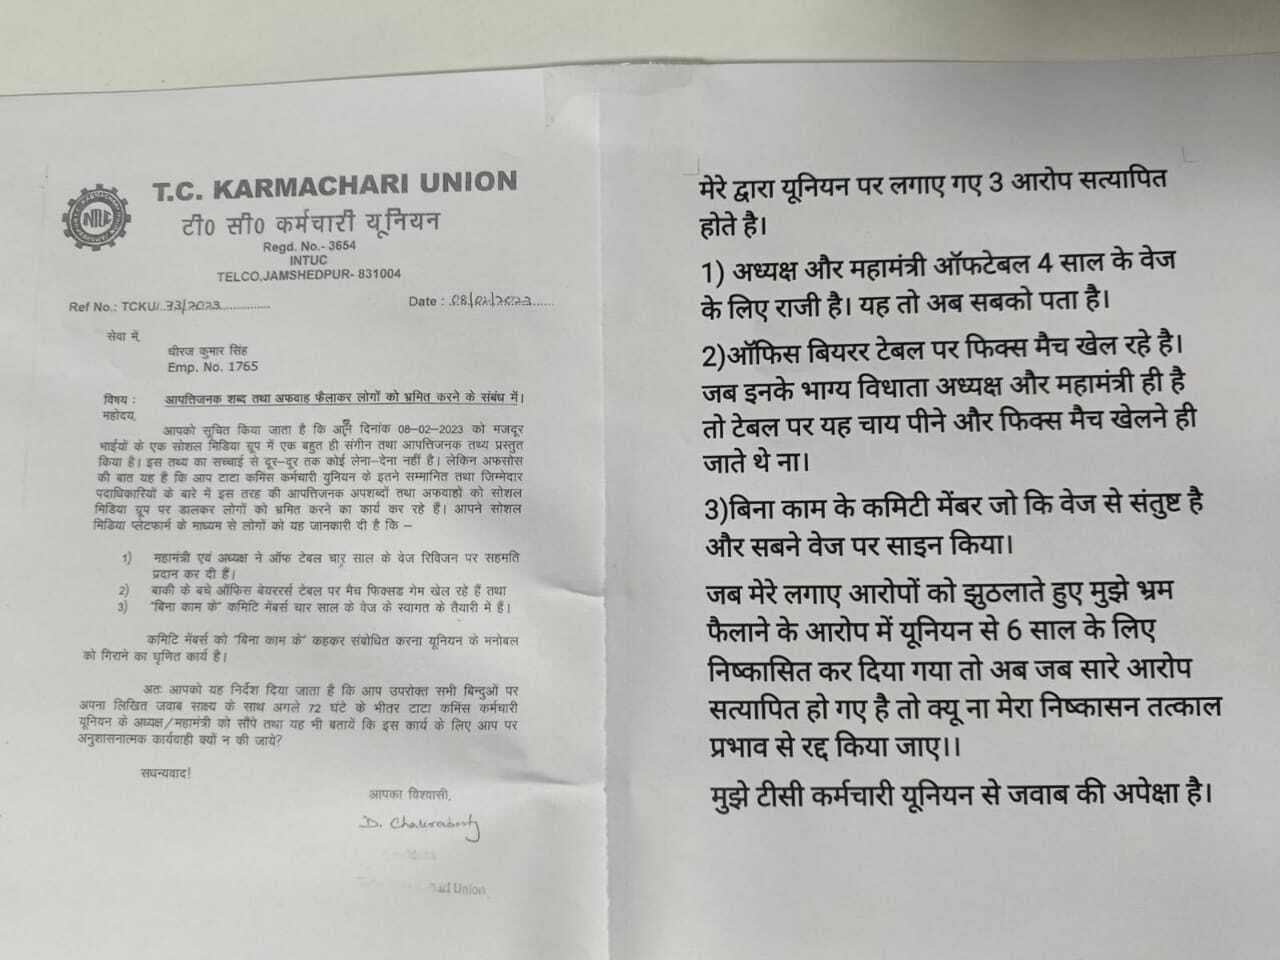 T.C. KARMACHARI UNION
टी० सी० कर्मचारी यूनियन
Regd. No.- 3654
INTUC
TELCO,JAMSHEDPUR- 831004
Ref No.: TCKU/.33/2023
Date : 08/02/2023
सेवा में,
धीरज कुमार सिंह
Emp. No. 1765
विषय : आपत्तिजनक शब्द तथा अफवाह फैलाकर लोगों को भ्रमित करने के संबंध में।
महोदय,
आपको सूचित किया जाता है कि आपने दिनांक 08–02–2023 को मजदूर
भाईयों के एक सोशल मिडिया ग्रुप में एक बहुत ही संगीन तथा आपत्तिजनक तथ्य प्रस्तुत
किया है। इस तथ्य का सच्चाई से दूर–दूर तक कोई लेना–देना नहीं है। लेकिन अफसोस
की बात यह है कि आप टाटा कमिंस कर्मचारी युनियन के इतने सम्मानित तथा जिम्मेदार
पदाधिकारियों के बारे में इस तरह की आपत्तिजनक अपशब्दों तथा अफवाहों को सोशल
मिडिया ग्रुप पर डालकर लोगों को भ्रमित करने का कार्य कर रहे हैं। आपने सोशल
मिडिया प्लेटफार्म के माध्यम से लोगों को यह जानकारी दी है कि –
1) महामंत्री एवं अध्यक्ष ने ऑफ टेबल चार साल के वेज रिविजन पर सहमति
प्रदान कर दी हैं।
2) बाकी के बचे ऑफिस बेयरर्स टेबल पर मैच फिक्सड गेम खेल रहे हैं तथा
3) "बिना काम के" कमिटि मेंबर्स चार साल के वेज के स्वागत के तैयारी में हैं।
कमिटि मेंबर्स को "बिना काम के" कहकर संबोधित करना यूनियन के मनोबल
को गिराने का घृणित कार्य है।
अतः आपको यह निर्देश दिया जाता है कि आप उपरोक्त सभी बिन्दुओं पर
अपना लिखित जवाब साक्ष्य के साथ अगले 72 घंटे के भीतर टाटा कमिंस कर्मचारी
यूनियन के अध्यक्ष/महामंत्री को सौंपे तथा यह भी बतायें कि इस कार्य के लिए आप पर
अनुशासनात्मक कार्यवाही क्यों न की जाये?
सधन्यवाद!
आपका विश्वासी,
D. Chakraborty
Union
मेरे द्वारा यूनियन पर लगाए गए 3 आरोप सत्यापित
होते है।
1) अध्यक्ष और महामंत्री ऑफटेबल 4 साल के वेज
के लिए राजी है। यह तो अब सबको पता है।
2)ऑफिस बियरर टेबल पर फिक्स मैच खेल रहे है।
जब इनके भाग्य विधाता अध्यक्ष और महामंत्री ही है
तो टेबल पर यह चाय पीने और फिक्स मैच खेलने ही
जाते थे ना।
3)बिना काम के कमिटी मेंबर जो कि वेज से संतुष्ट है
और सबने वेज पर साइन किया।
जब मेरे लगाए आरोपों को झुठलाते हुए मुझे भ्रम
फैलाने के आरोप में यूनियन से 6 साल के लिए
निष्कासित कर दिया गया तो अब जब सारे आरोप
सत्यापित हो गए है तो क्यू ना मेरा निष्कासन तत्काल
प्रभाव से रद्द किया जाए।।
मुझे टीसी कर्मचारी यूनियन से जवाब की अपेक्षा है।